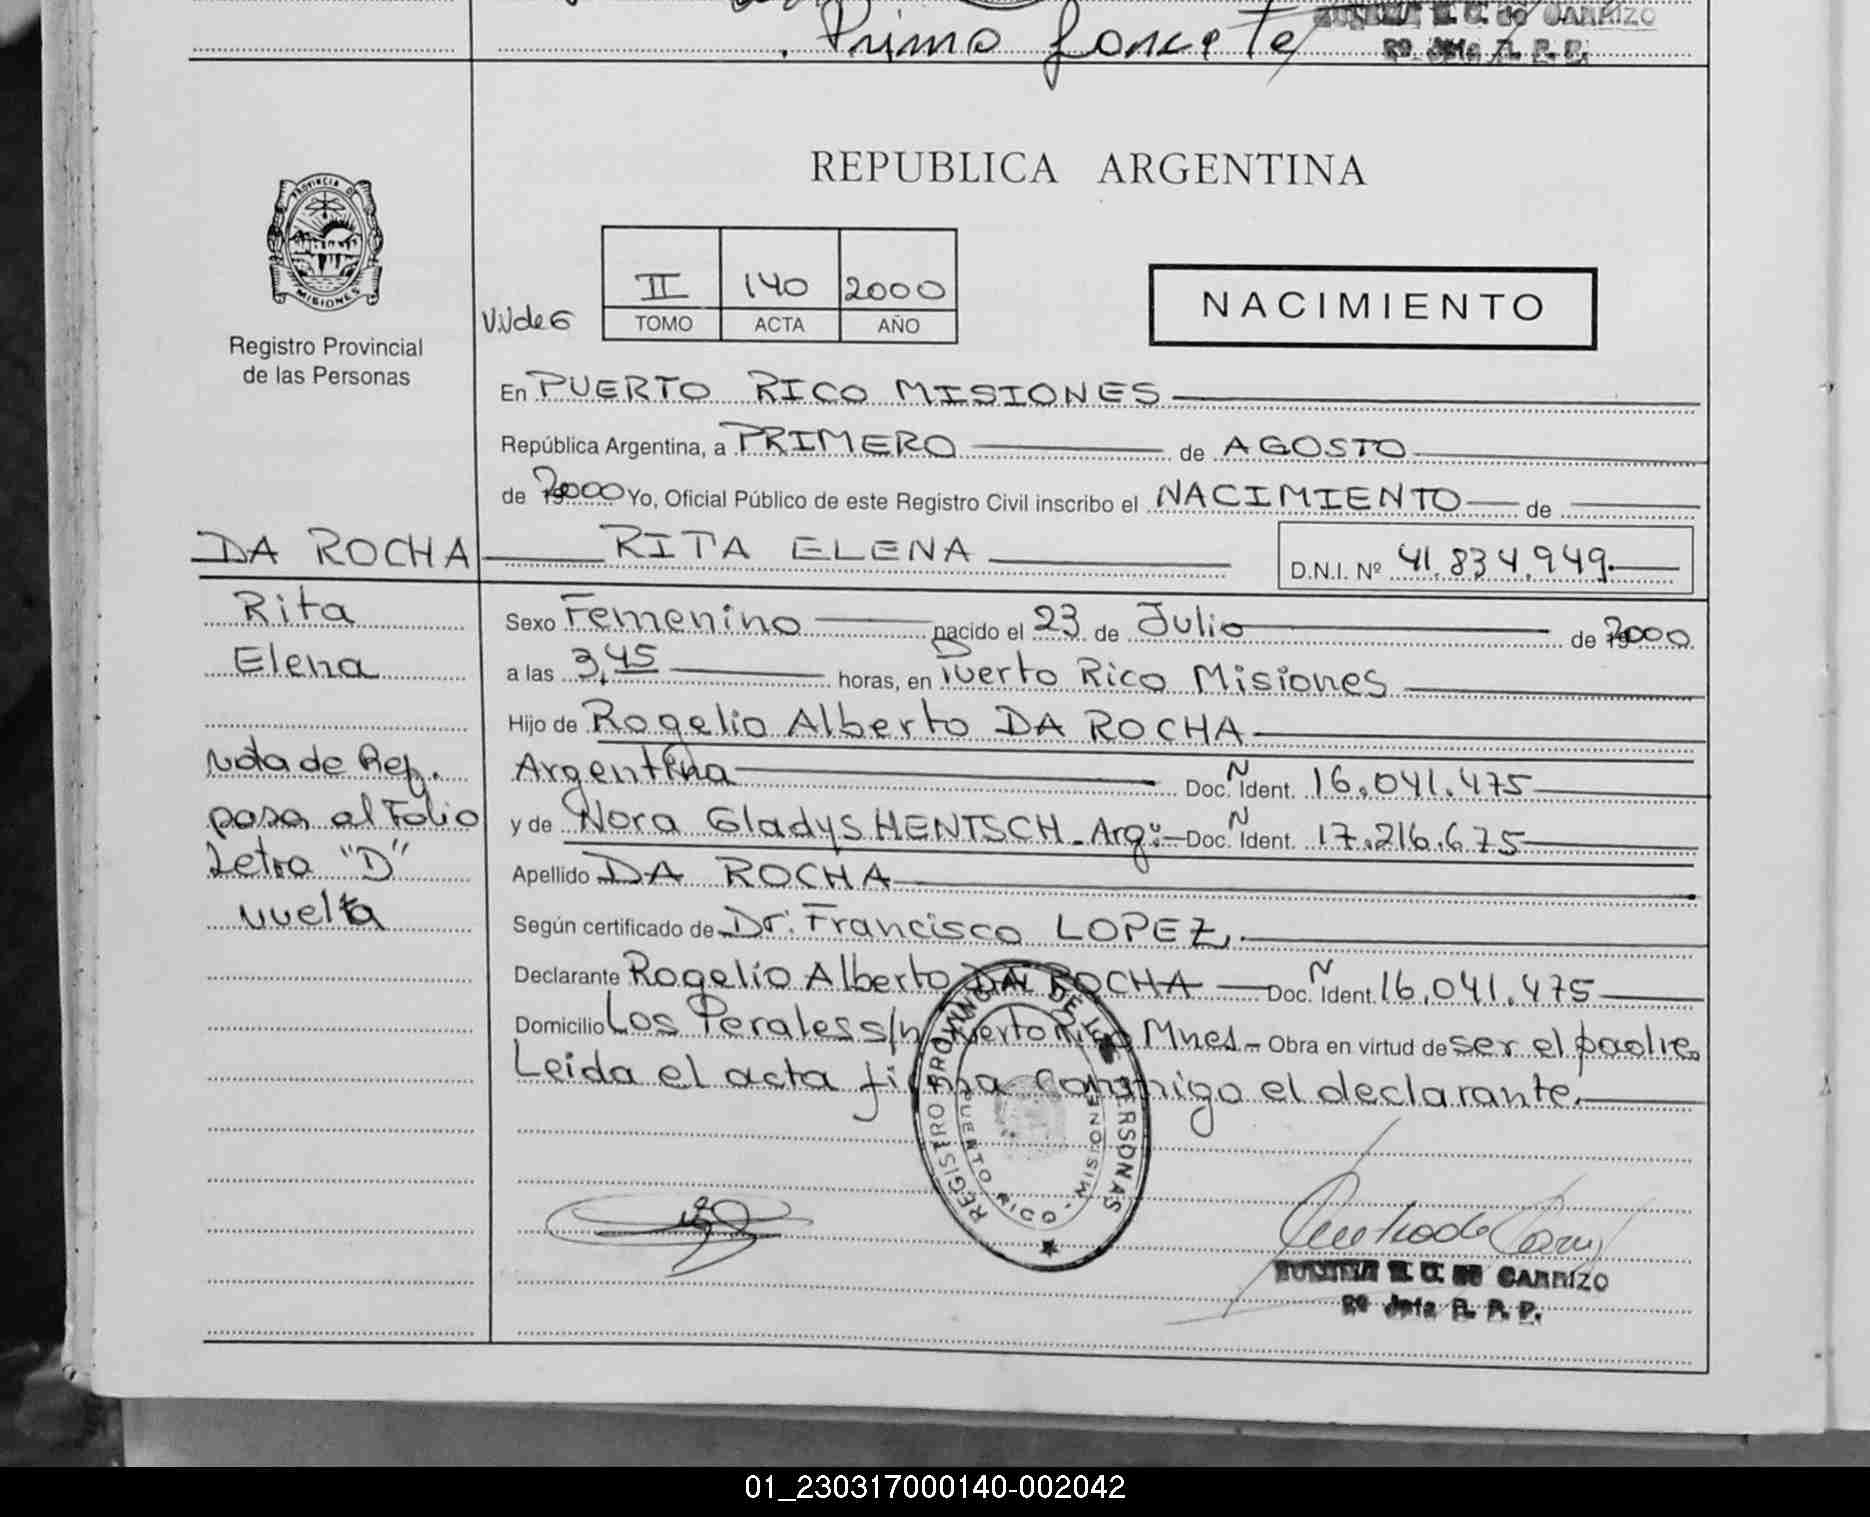 Primo Goncete
DE CARRIZO
2º Jefa R. P. P.
PROVINCIA DE
MISIONES
Registro Provincial
de las Personas
REPUBLICA ARGENTINA
II 140 2000
TOMO ACTA AÑO
NACIMIENTO
En PUERTO RICO MISIONES
República Argentina, a PRIMERO de AGOSTO
de 2000 Yo, Oficial Público de este Registro Civil inscribo el NACIMIENTO de
DA ROCHA RITA ELENA D.N.I. Nº 41.834.949.
Rita
Elena
Nota de Ref.
pasa al Folio
Letra "D"
vuelta
Sexo Femenino nacido el 23 de Julio de 2000
a las 3,45 horas, en Puerto Rico Misiones
Hijo de Rogelio Alberto DA ROCHA
Argentina Doc. N Ident. 16.041.475
y de Nora Gladys HENTSCH - Arg: Doc. N Ident. 17.216.675
Apellido DA ROCHA
Según certificado de Dr. Francisco LOPEZ.
Declarante Rogelio Alberto DA ROCHA Doc. N Ident. 16.041.475
Domicilio Los Perales s/n Puerto Rico Mnes - Obra en virtud de ser el padre.
Leida el acta firma conmigo el declarante.
REGISTRO PROVINCIAL DE LAS PERSONAS
PUERTO RICO - MISIONES
DE CARRIZO
2º Jefa R. P. P.
01_230317000140-002042